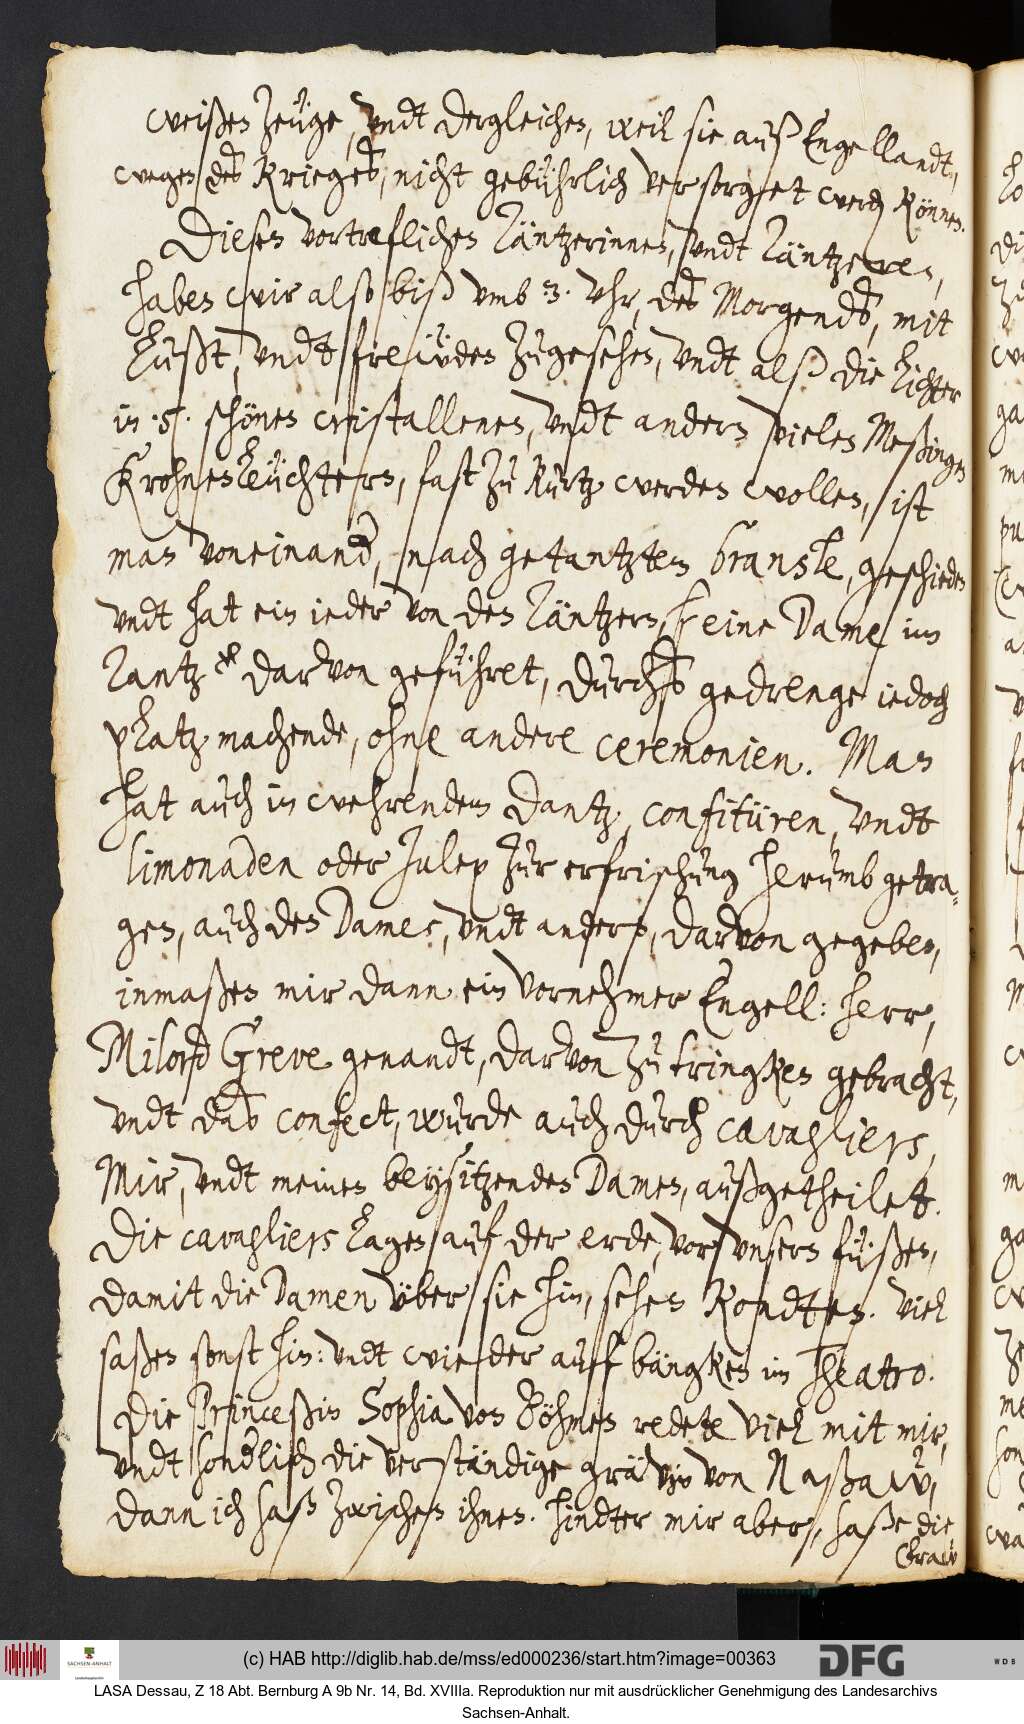 weißen zeüge, vndt dergleichen, weil sie auß Engellandt,
wegen des Krieges, nicht gebührlich versorget werden können.
Diesen vortreflichen Täntzerinnen, vndt Täntzeren,
haben wir also biß vmb 3. Vhr, des Morgends, mit
Lußt, vndt freüden zugesehen, vndt alß die Lichter
in .5. schönen cristallenen, vndt andern vielen Meßingen
Krohnenleüchtern, fast zu kurtz werden wollen, ist
man voneinander, nach getantztem bransle, geschieden
vndt hat ein ieder von den Täntzern, seine Dame im
Tantz darvon geführet, durchs gedrenge iedoch
platz machende, ohne andere ceremonien. Man
hat auch in wehrendem Dantz, confitüren, vndt
limonaden oder Julep zur erfrischung herumb getra-
gen, auch den Damen, vndt andern, darvon gegeben,
inmaßen mir dann ein vornehmer Engell: herr,
Milord Greve genandt, darvon zu trincken gebracht,
vndt das confect, wurde auch durch cavagliers,
Mir, vndt meinen beysitzenden Damen, außgetheilet.
Die cavagliers lagen auf der erde, vor vnsern füßen,
damit die Damen über sie hin, sehen kondten. Viel
saßen sonst hin: vndt wieder auff bäncken im Theatro.
Die Princeßin Sophia von Böhmen redete viel mit mir,
vndt sonderlich die verständige grävin von Naßaw,
dann ich saß zwischen ihnen. Hindter mir aber, saße die
Fraw
(c) HAB http://diglib.hab.de/mss/ed000236/start.htm?image=00363
SACHSEN-ANHALT
DFG
WDB
LASA Dessau, Z 18 Abt. Bernburg A 9b Nr. 14, Bd. XVIIIa. Reproduktion nur mit ausdrücklicher Genehmigung des Landesarchivs
Sachsen-Anhalt.